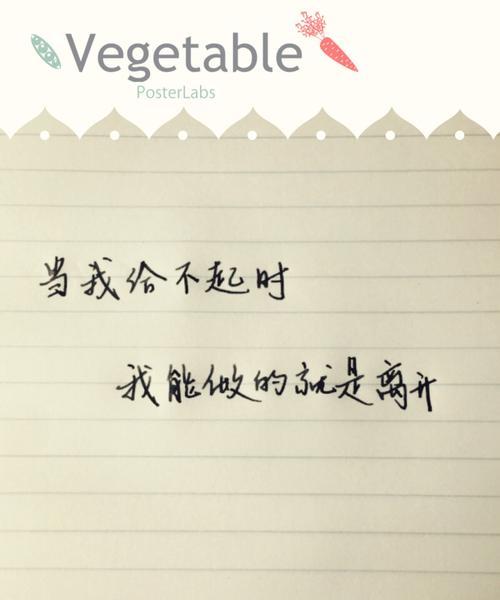 Vegetable
PosterLabs
当我给不起时
我能做的就是离开